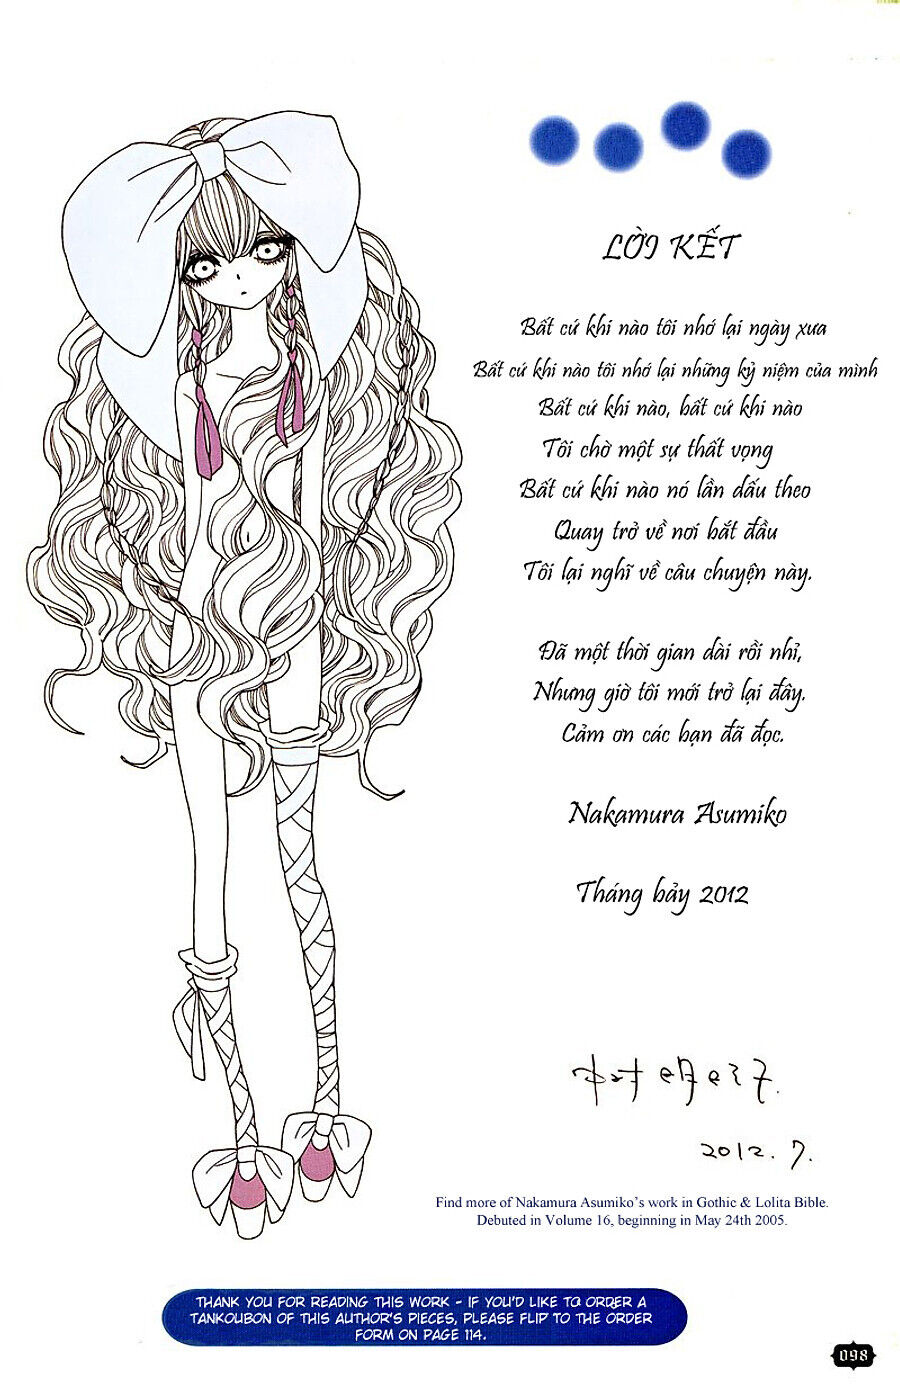 LỜI KẾT
Bất cứ khi nào tôi nhớ lại ngày xưa
Bất cứ khi nào tôi nhớ lại những kỷ niệm của mình
Bất cứ khi nào, bất cứ khi nào
Tôi chờ một sự thất vọng
Bất cứ khi nào nó lần dấu theo
Quay trở về nơi bắt đầu
Tôi lại nghĩ về câu chuyện này.
Đã một thời gian dài rồi nhỉ,
Nhưng giờ tôi mới trở lại đây.
Cảm ơn các bạn đã đọc.
Nakamura Asumiko
Tháng bảy 2012
中村明日美子.
2012. 7.
Find more of Nakamura Asumiko's work in Gothic & Lolita Bible.
Debuted in Volume 16, beginning in May 24th 2005.
THANK YOU FOR READING THIS WORK - IF YOU'D LIKE TO ORDER A
TANKOUBON OF THIS AUTHOR'S PIECES, PLEASE FLIP TO THE ORDER
FORM ON PAGE 114.
098